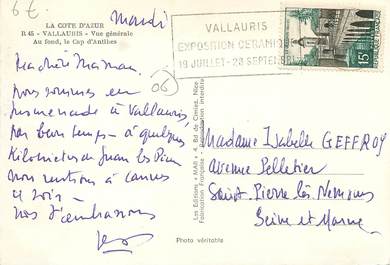 6 €
LA COTE D'AZUR
R 45 - VALLAURIS - Vue générale
Au fond, le Cap d'Antibes
Mardi
VALLAURIS
EXPOSITION CERAMIQUE
19 JUILLET - 20 SEPTEMBRE
15F
(06)
Ma chère Maman
Nous sommes en
promenade à Vallauris,
par beau temps - à quelques
Kilomètres de Juan les Pins
Nous rentrons à Cannes
ce soir -
Nos t'embrassons
Les Editions "MAR" - Bd de Cimiez, Nice
Fabrication Française - Reproduction interdite
Madame Isabelle GEFFROY
avenue Pelletier
Saint-Pierre lès Nemours
Seine et Marne
Photo véritable